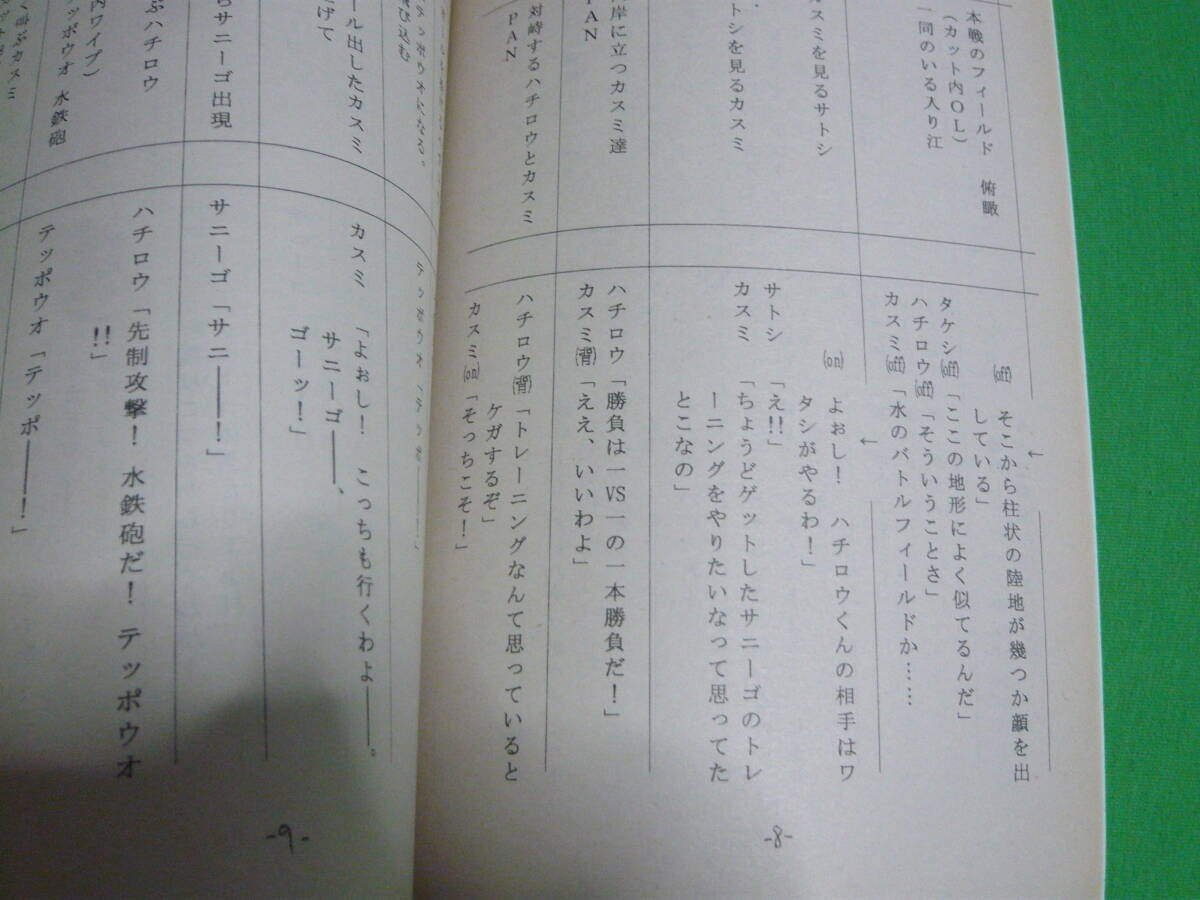 本戦のフィールド 俯瞰
(カット内OL)
一同のいる入り江
カスミを見るサトシ
トシを見るカスミ
岸に立つカスミ達
PAN
対峙するハチロウとカスミ
PAN
←
(off) そこから柱状の陸地が幾つか顔を出
している」
タケシ(off)「ここの地形によく似てるんだ」
ハチロウ(off)「そういうことさ」
カスミ(off)「水のバトルフィールドか……
←
(on) よぉし! ハチロウくんの相手はワ
タシがやるわ!」
サトシ 「え!!」
カスミ 「ちょうどゲットしたサニーゴのトレ
ーニングをやりたいなって思ってた
とこなの」
ハチロウ「勝負は一VS一の一本勝負だ!」
カスミ(背)「ええ、いいわよ」
ハチロウ(背)「トレーニングなんて思っていると
ケガするぞ」
カスミ(on)「そっちこそ!」
-8-
ッポウオになる。
び込む
ール出したカスミ
げて
らサニーゴ出現
ぶハチロウ
内ワイプ)
ッポウオ 水鉄砲
く叫ぶカスミ
カスミ 「よぉし! こっちも行くわよ――。
サニーゴ――、
ゴーッ!」
サニーゴ「サニ――――!」
ハチロウ「先制攻撃! 水鉄砲だ! テッポウオ
!!」
テッポウオ「テッポ――――!」
-9-